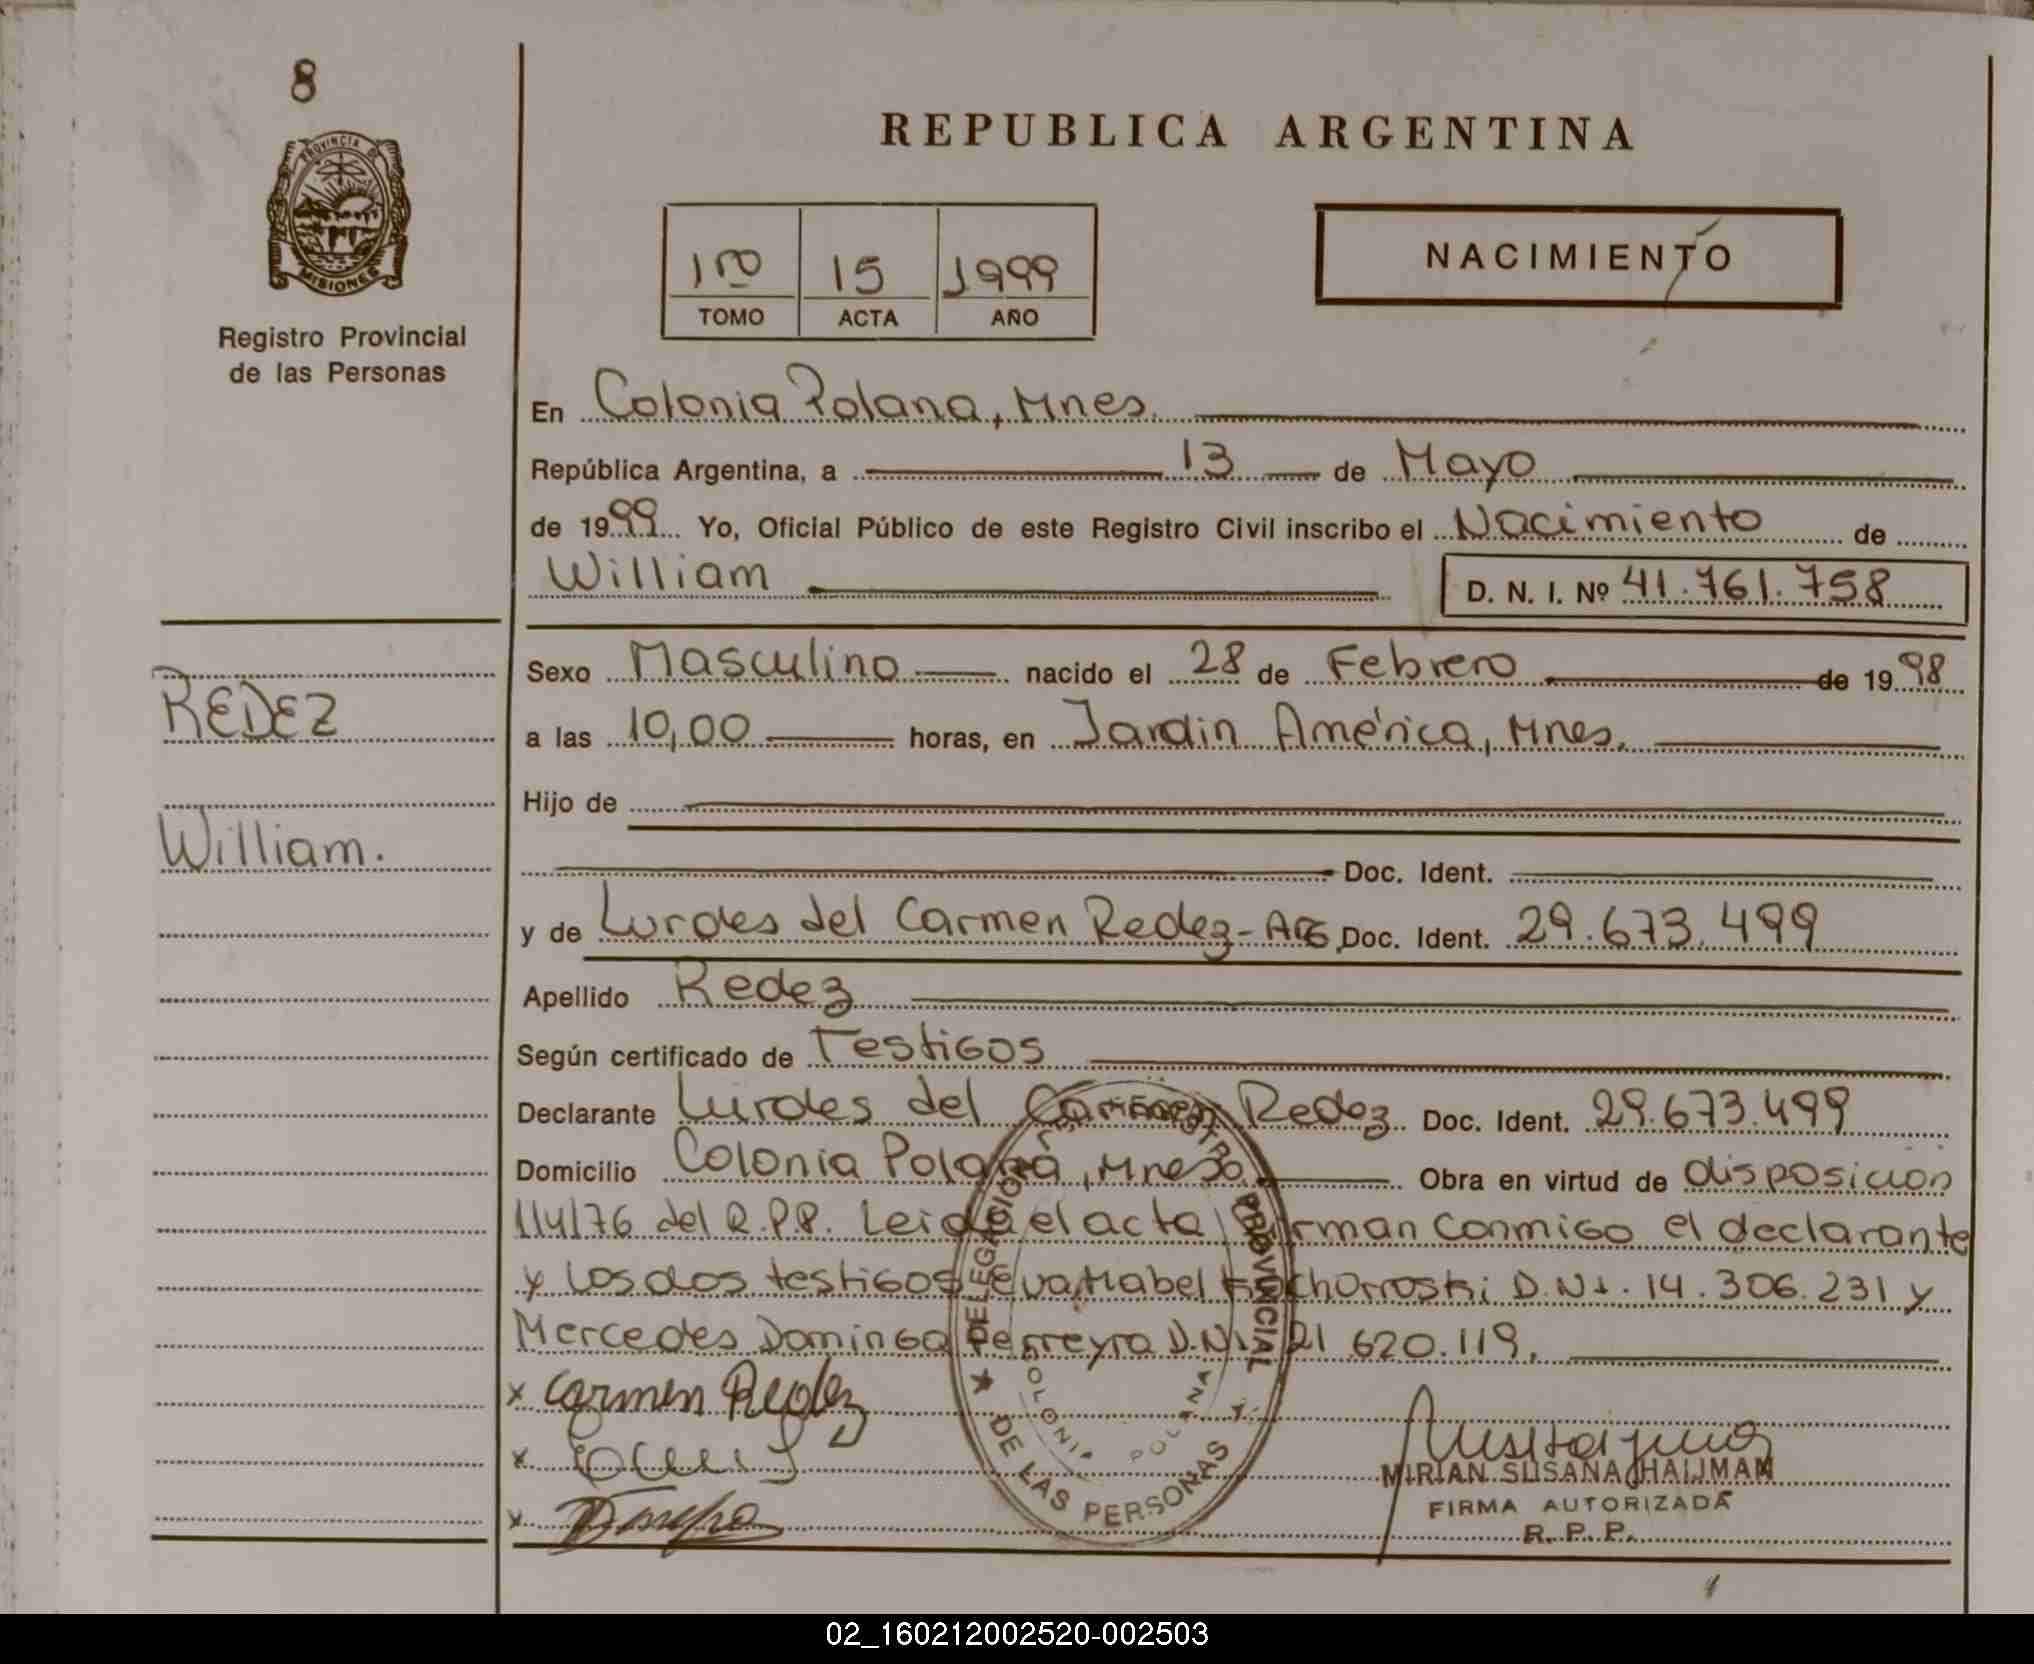 8
PROVINCIA DE
MISIONES
Registro Provincial
de las Personas
REPUBLICA ARGENTINA
1ro 15 1999
TOMO ACTA AÑO
NACIMIENTO
En Colonia Polana, Mnes.
República Argentina, a 13 de Mayo
de 1999 Yo, Oficial Público de este Registro Civil inscribo el Nacimiento de
William D. N. I. Nº 41.761.758
REDEZ
William.
Sexo Masculino nacido el 28 de Febrero de 1998
a las 10,00 horas, en Jardin América, Mnes.
Hijo de
Doc. Ident.
y de Lurdes del Carmen Redez - ARG Doc. Ident. 29.673.499
Apellido Redez
Según certificado de Testigos
Declarante Lurdes del Carmen Redez Doc. Ident. 29.673.499
Domicilio Colonia Polana, Mnes. Obra en virtud de disposicion
114/76 del R.P.P. Leida el acta firman conmigo el declarante
y los dos testigos Eva Mabel D.N.I. 14.306.231 y
Mercedes Dominga Ferreyra D.N.I. 21.620.119.
x Carmen Redez
x
x
DELEGACION REGISTRO PROVINCIAL
DE LAS PERSONAS
COLONIA POLANA
MIRIAN SUSANA HAIJMAN
FIRMA AUTORIZADA
R. P. P.
02_160212002520-002503